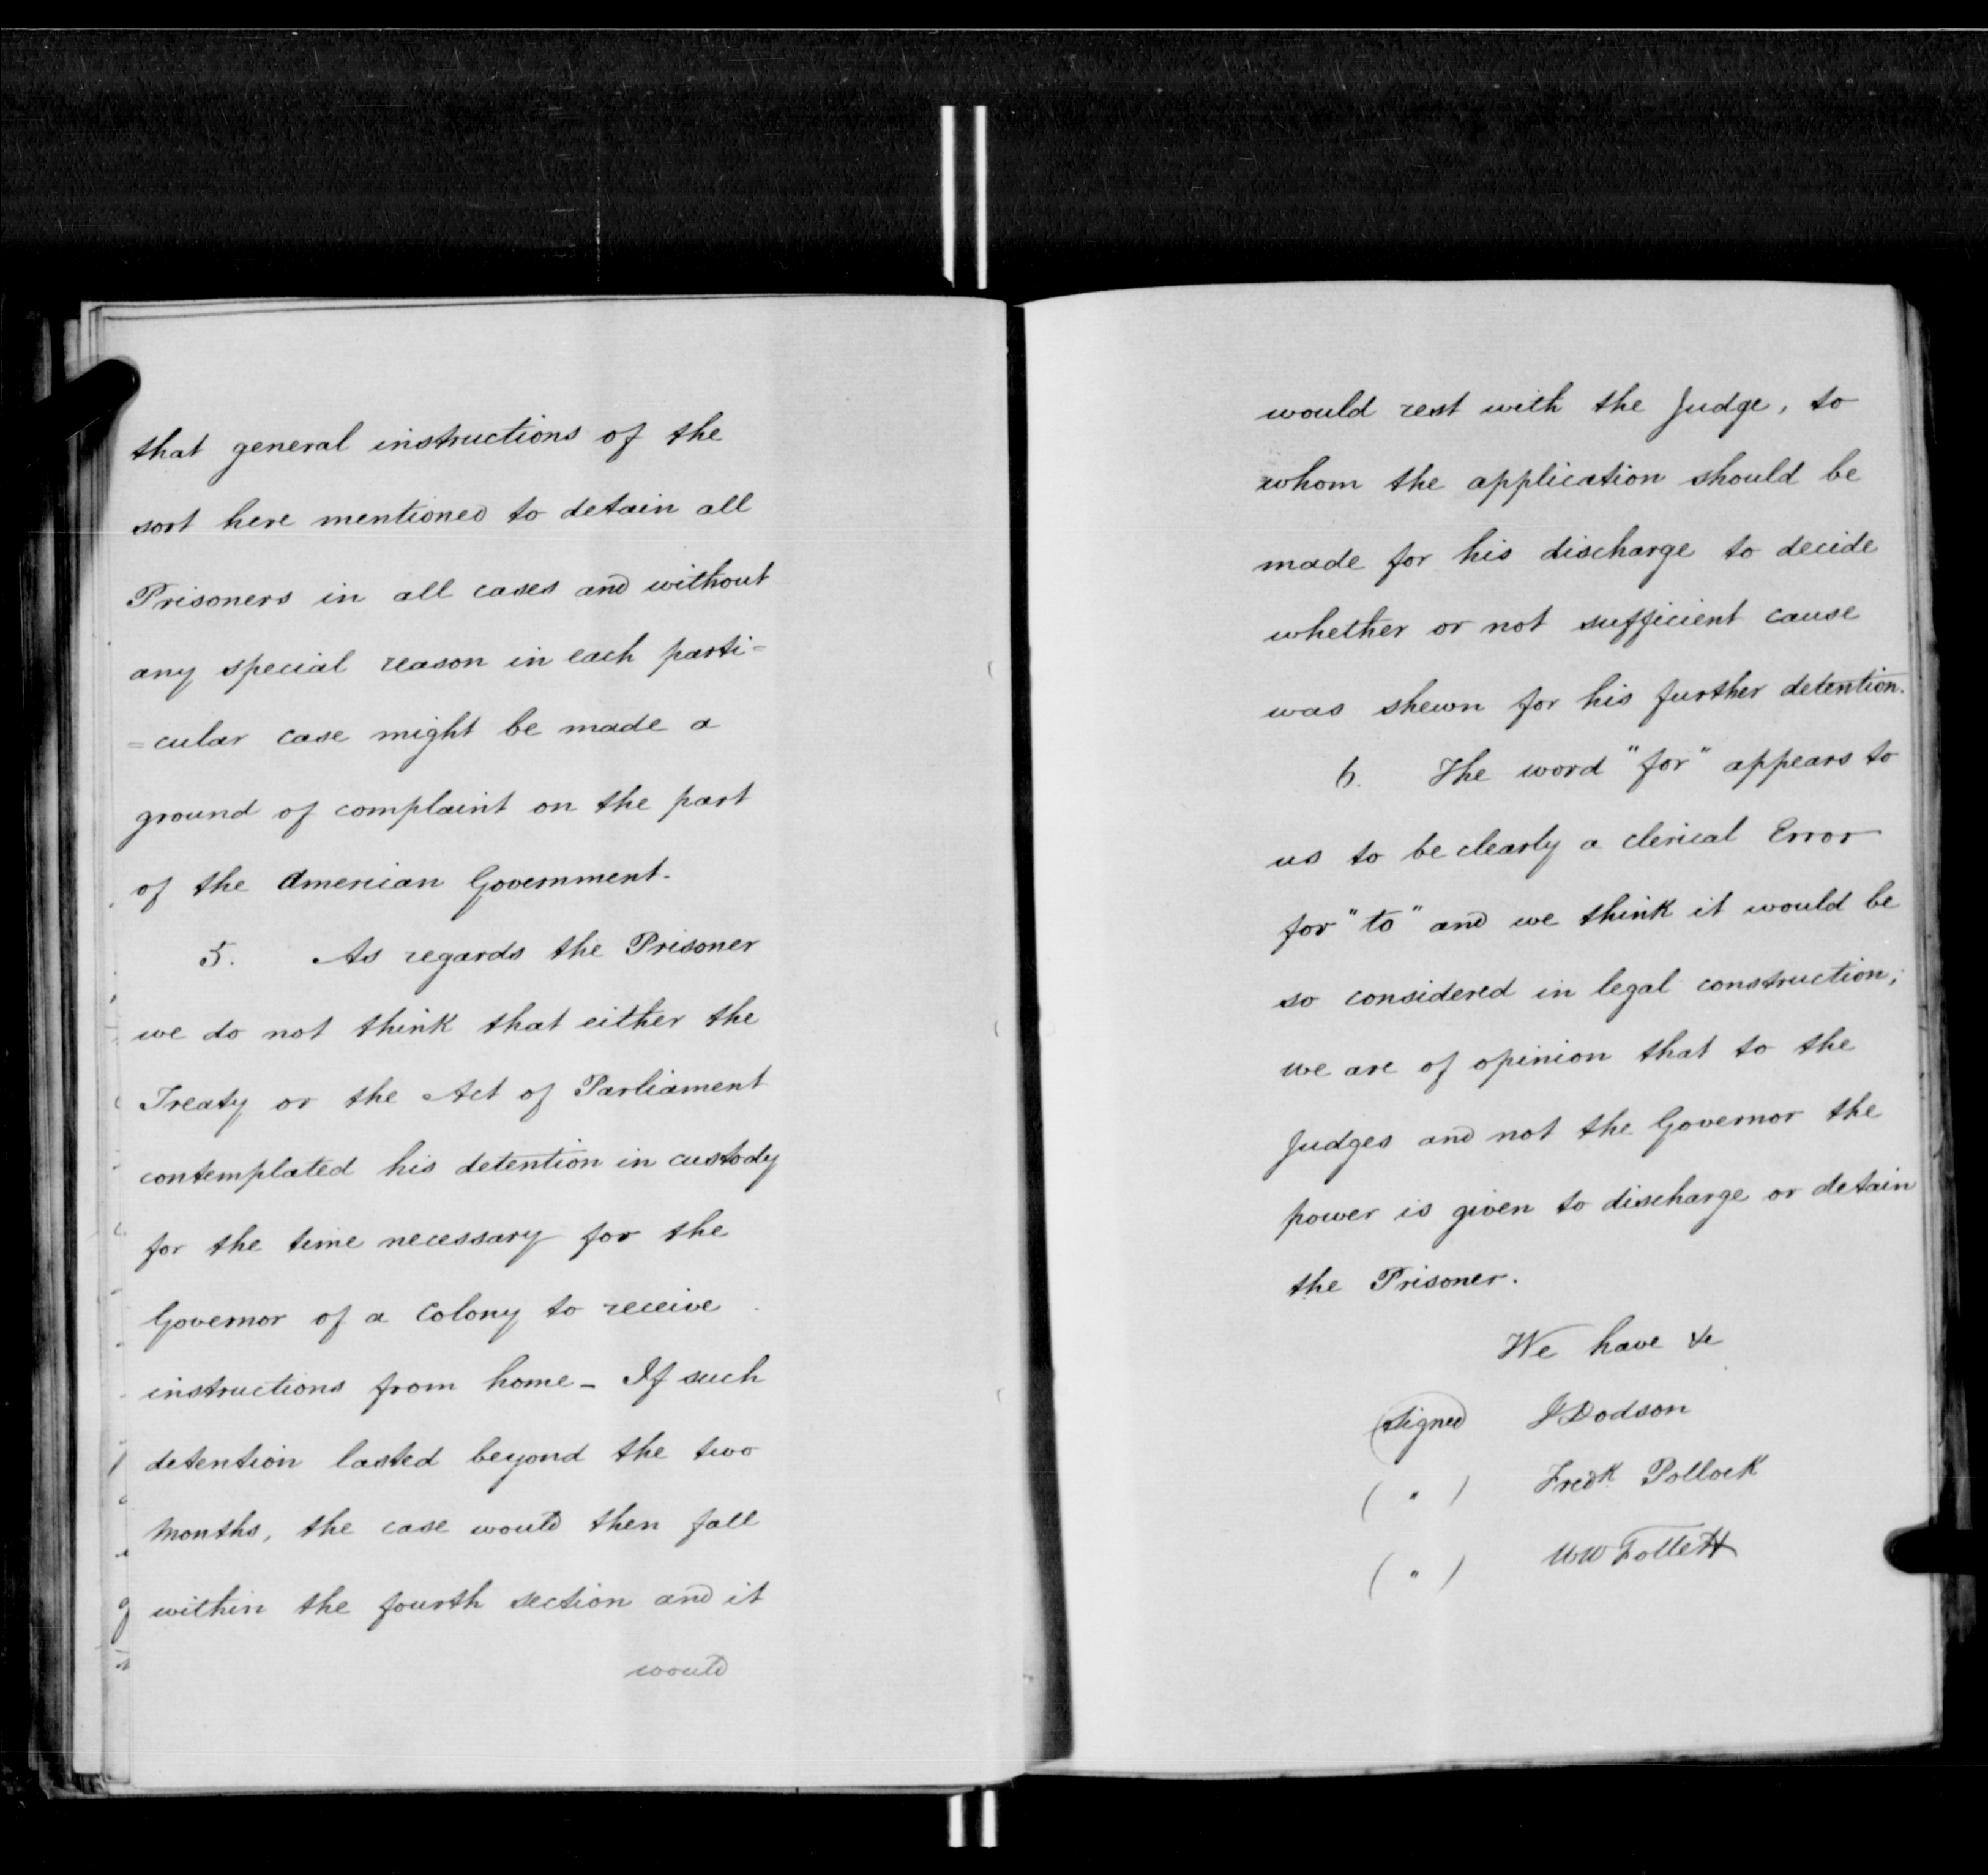 that general instructions of the
sort here mentioned to detain all
Prisoners in all cases and without
any special reason in each parti=
=cular case might be made a
ground of complaint on the part
of the American Government.
5. As regards the Prisoner
we do not think that either the
Treaty or the Act of Parliament
contemplated his detention in custody
for the time necessary for the
Governor of a Colony to receive
instructions from home _ If such
detention lasted beyond the two
Months, the case would then fall
within the fourth section and it
would
would rest with the Judge, to
whom the application should be
made for his discharge to decide
whether or not sufficient cause
was shewn for his further detention.
6. The word "for" appears to
us to be clearly a clerical Error
for "to" and we think it would be
so considered in legal construction;
we are of opinion that to the
Judges and not the Governor the
power is given to discharge or detain
the Prisoner.
We have &c
(signed J Dodson
( " ) Fredk Pollock
( " ) W W Follett